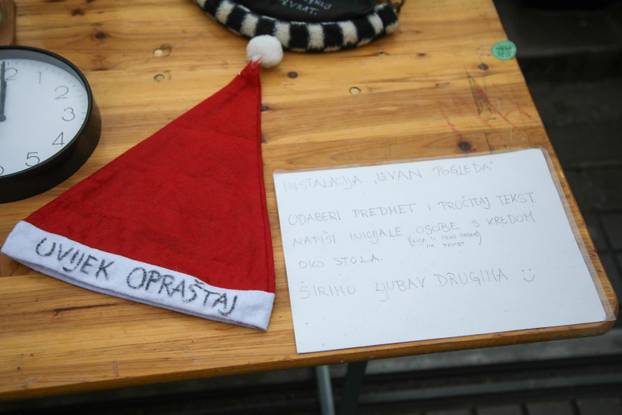 UVIJEK OPRAŠTAJ
INSTALACIJA „IZVAN POGLEDA"
ODABERI PREDMET I PROČITAJ TEKST.
NAPIŠI INICIJALE OSOBE S KREDOM
OKO STOLA.
ŠIRIMO LJUBAV DRUGIMA :)
1
2
3
4
5